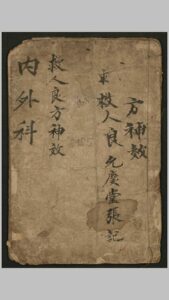 方神效
救人良
允慶堂張記
救人良方神效
内外科